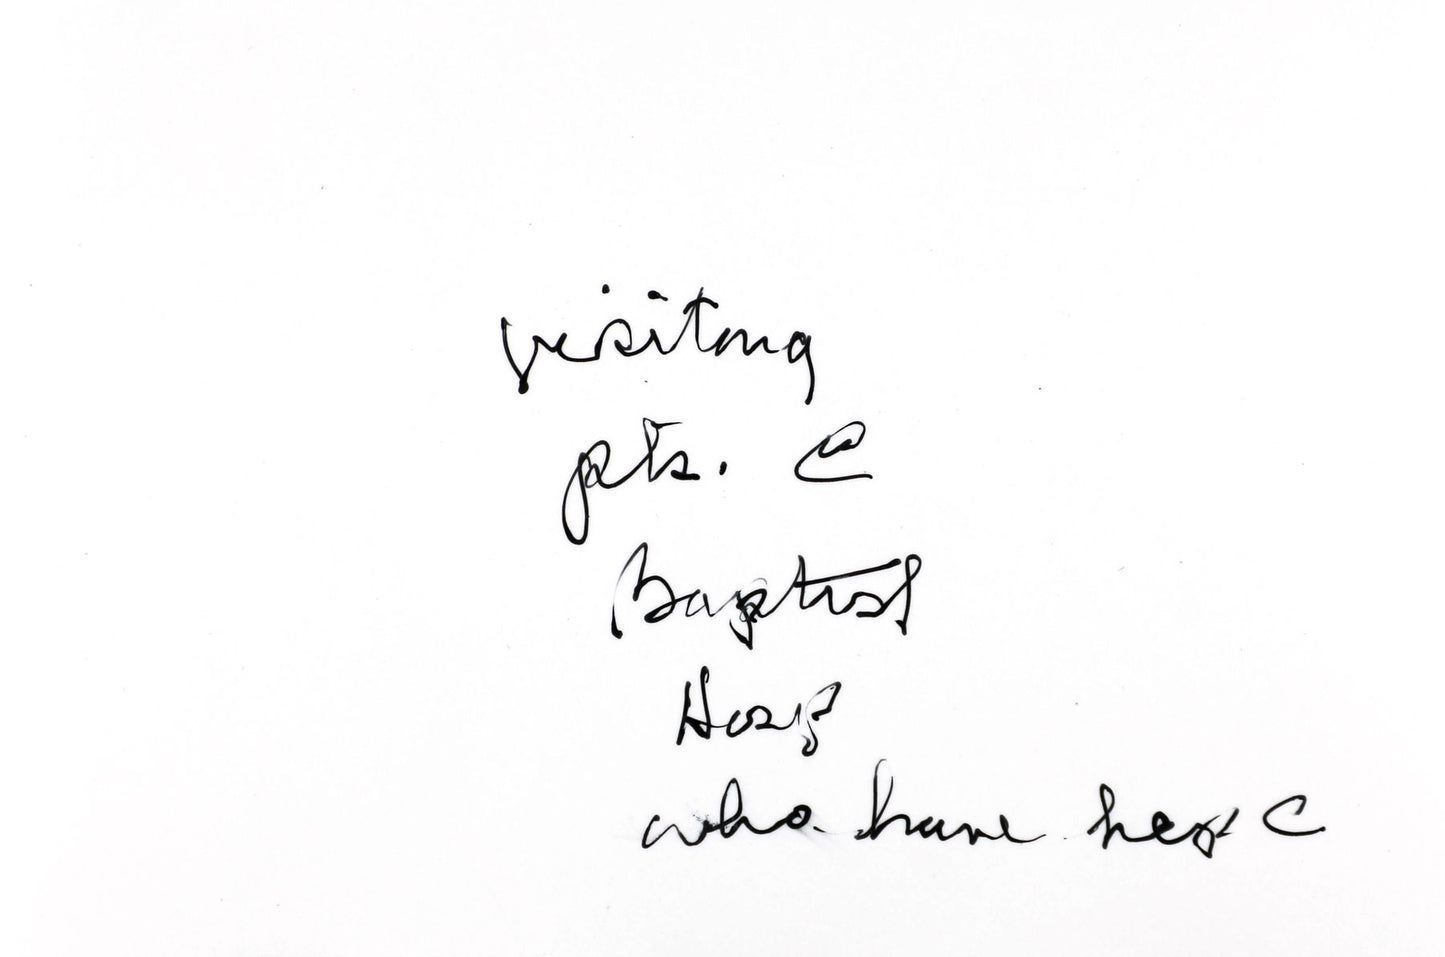 visiting
pts. @
Baptist
Hosp
who have hep C